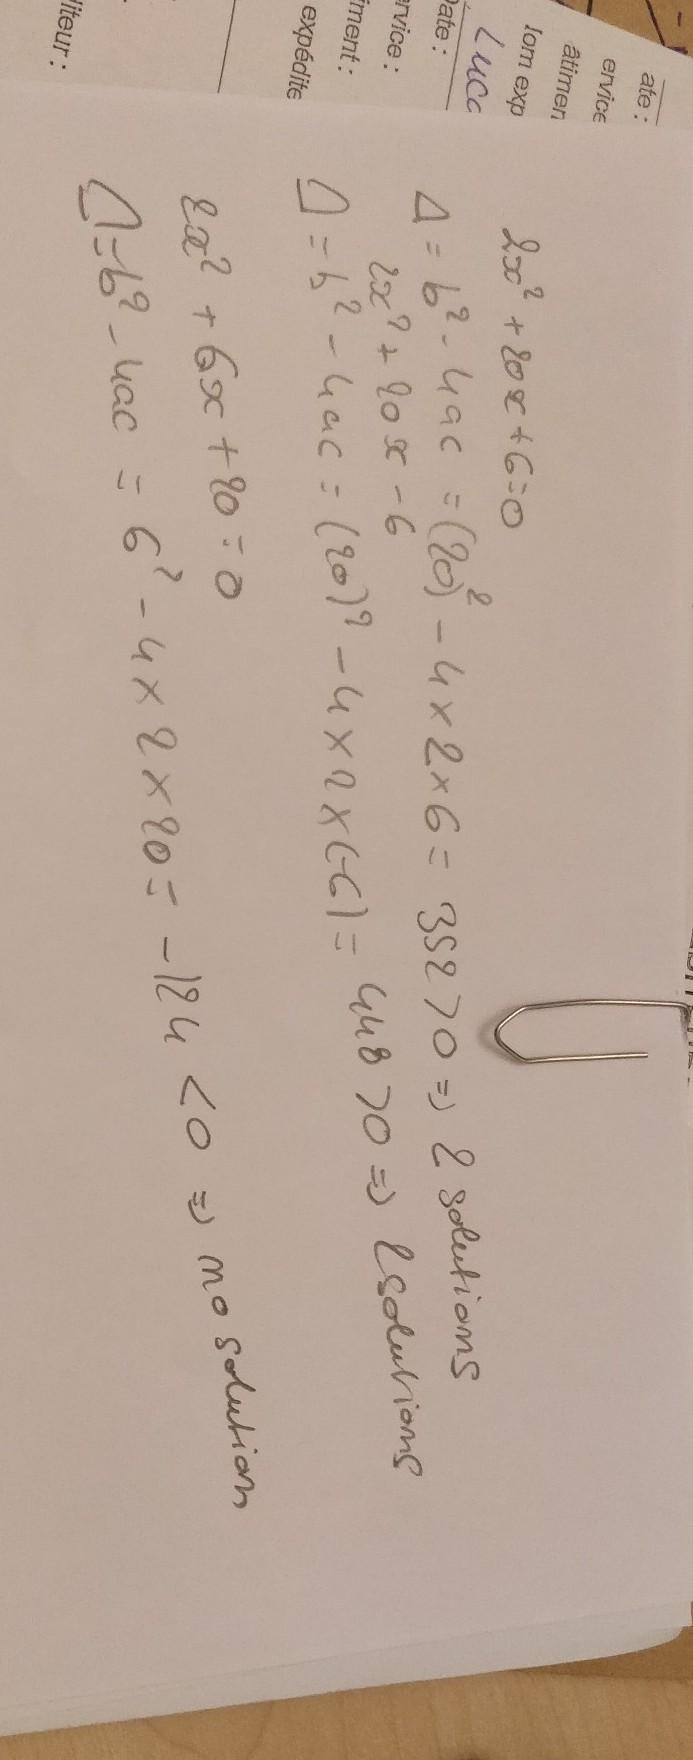 ate :
ervice
âtimen
lom exp
Luca
Date :
ervice :
iment :
expédite
liteur :
2x² + 20x + 6 = 0
Δ = b² - 4ac = (20)² - 4 × 2 × 6 = 352 > 0 => 2 solutions
2x² + 20x - 6
Δ = b² - 4ac = (20)² - 4 × 2 × (-6) = 448 > 0 => 2 solutions
2x² + 6x + 20 = 0
Δ = b² - 4ac = 6² - 4 × 2 × 20 = -124 < 0 => no solution